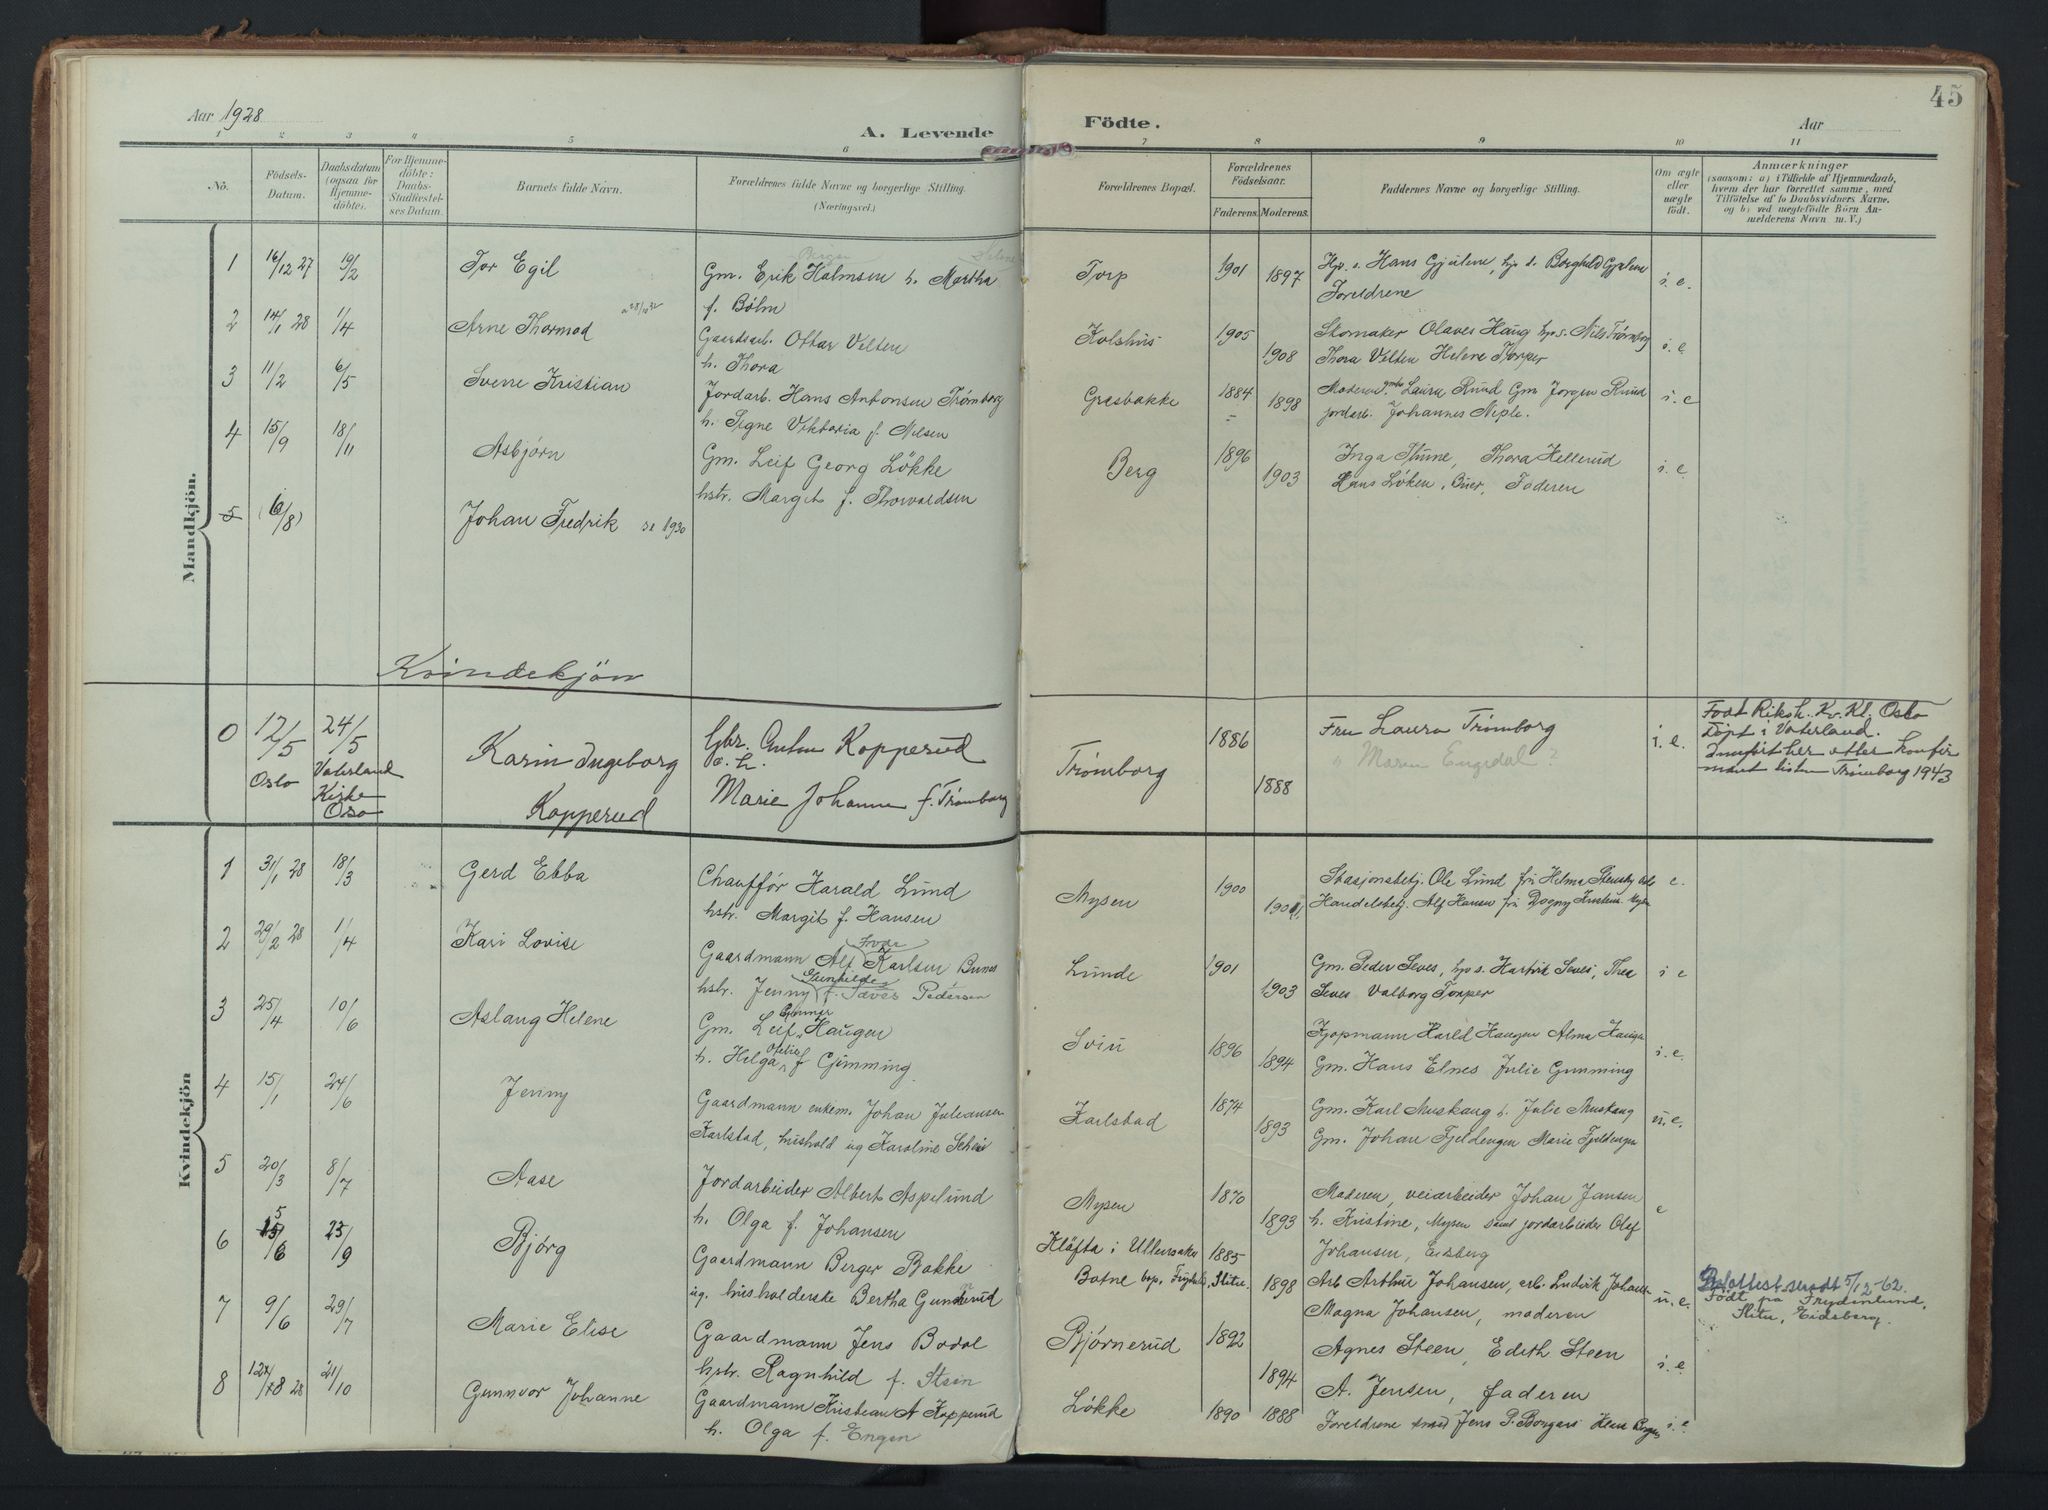 Aar 1928
A. Levende
Födte.
Aar
45
1 2 3 4 5 6 7 8 9 10 11
No.
Födsels-Datum.
Daabsdatum (ogsaa for Hjemme-döbte).
For Hjemme-döbte: Daabs-Stadfæstel-ses Datum.
Barnets fulde Navn.
Forældrenes fulde Navne og borgerlige Stilling. (Næringsvei.)
Forældrenes Bopæl.
Forældrenes Födselsaar.
Faderens. Moderens.
Faddernes Navne og borgerlige Stilling.
Om ægte eller uægte födt.
Anmærkninger
(saasom: a) i Tilfælde af Hjemmedaab,
hvem der har forrettet samme, med
Tilföielse af to Daabsvidners Navne.
og b) ved uægtefödte Börn An-
melderens Navn m. V.)
Mandkjön.
1 16/12 27 19/2 Tor Egil Gm. Erik Birger Halmsen h. Martha Selene
f. Bølm
Torp 1901 1897 Hans Gjülene, Borghild Gjølene
Foreldrene i. e.
2 14/1 28 1/4 Arne Thormod Gaardsarb. Ottar Velten
h. Thora
Kolshus 1905 1908 Skomaker Olaves Haug hps. Nils Trømborg
Thora Velten Helene Torper i. e.
3 11/2 6/5 Sverre Kristian Jordarb. Hans Antonsen Trømborg
h. Signe Viktoria f. Nilsen
Græsbakke 1884 1898 Moderen, Laura Ruud Gm Jørgen Ruud
jordarb. Johannes Neple. i. e
4 15/9 18/11 Asbjørn Gm. Leif Georg Løkke
hstr. Margit f. Thorvaldsen
Berg 1896 1903 Inga Thune, Thora Hellerud
Hans Løken, Buer, Faderen i. e
5 (6/8) Johan Fredrik se 1930
Kvindekjön
0 12/5 Oslo 24/5 Vaterland Kirke Oslo Karin Ingeborg Kopperud
Gbr. Anton Kopperud
o. h.
Marie Johanne f. Trømborg
Trømborg 1886 1888 Fru Laura Trømborg
" Maren Engedal ?
i. e.
Født Riksh. Kv. Kl. Oslo
Døpt i Vaterland.
Innført her etter konfir
mant listen Trømborg 1943
Kvindekjön
1 31/1 28 18/3 Gerd Ebba Chauffør Harald Lund
hstr. Margit f. Hansen
Mysen 1900 Stasjonsbetj. Ole Lund frü Helma
Handelsbetj. Alf Hansen frü Dagny e.
2 29/2 28 1/4 Kari Lovise Gaardmann Alf Karlsen Bunes
hstr. Jenny f. Sæves Pedersen
Lunde 1901 1903 Gm. Peder Seves, hps. Hartvik Seves, Thea
Seves Valborg Torper i e
3 25/4 10/6 Aslaug Helene Gm. Leif Haugen
h. Helga Ofelie f. Gimming
Sviu 1896 1894 Kjøpmann Harld Haugen Alma Haugen
Gm. Hans Elnes Julie Gunming i. e.
4 15/1 24/6 Jenny Gaardmann enkem. Johan Juliansen
Karlstad, hushold ug Karoline
Karlstad 1874 1893 Gm. Karl Muskaug h. Julie Muskaug
Gm. Johan Fjeldengen Marie Fjeldengen u. e.
5 20/3 8/7 Aase Jordarbeider Albert Aspelund
h. Olga f. Johansen
Mysen 1870 1893 Moderen, veiarbeider Johan Jansen
h. Kristine, Mysen samt jordarbeider Olaf
Johansen, Eidsberg e
6 15/6 5 23/9 Bjørg Gaardmann Berger Bakke
ug. husholderske Bertha Gunderud
Kløfta i Ullensaker
Botne
1885 1898 Arb Arthur Johansen, arb. Ludvik Johansen
Magna Johansen, moderen u. e.
5/12-62.
Født på Frydenlund,
Slitu, Eidsberg.
7 9/6 29/7 Marie Elise Gaardmann Jens Bodal
hstr. Ragnhild f. Stein
Bjørnerud 1892 1894 Agnes Steen, Edith Steen
A. Jensen, faderen i. e.
8 28 21/10 Gunnvor Johanne Gaardmann Kristian A Kopperud
h. Olga f. Engen
Løkke 1890 1888 Foreldrene samt Jens P. Borgaas i. e